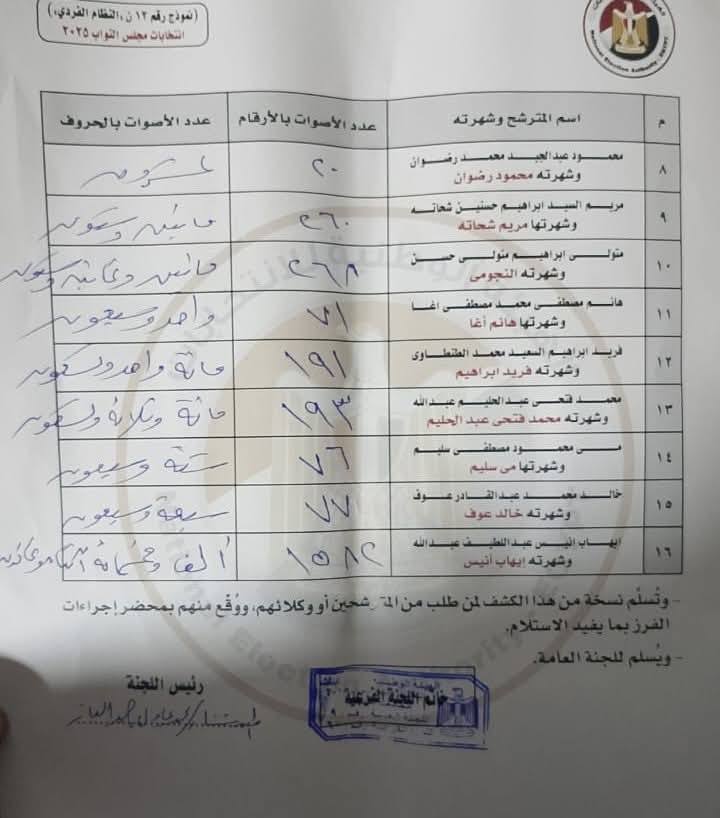 (نموذج رقم ١٢ ن، النظام الفردي،)
انتخابات مجلس النواب ٢٠٢٥
National Election Authority - EGYPT
م
اسم المترشح وشهرته
عدد الأصوات بالأرقام
عدد الأصوات بالحروف
٨
محمود عبدالجيد محمد رضوان
وشهرته محمود رضوان
٢٠
عشرون
٩
مريم السيد ابراهيم حسنين شحاته
وشهرتها مريم شحاته
٢٦٠
مائتين وستون
١٠
متولى ابراهيم متولى حسن
وشهرته النجومى
٢٦٨
مائتين وثمانية وستون
١١
هانم مصطفى محمد مصطفى اغا
وشهرتها هانم أغا
٧١
واحد وسبعون
١٢
فريد ابراهيم السعيد محمد الطنطاوى
وشهرته فريد ابراهيم
١٩١
مائة واحد وتسعون
١٣
محمد فتحى عبد الحليم عبدالله
وشهرته محمد فتحى عبد الحليم
١٩٣
مائة وثلاثة وتسعون
١٤
مى محمود مصطفى سليم
وشهرتها مى سليم
٧٦
ستة وسبعون
١٥
خالد محمد عبدالقادر عوف
وشهرته خالد عوف
٧٧
سبعة وسبعون
١٦
إيهاب انيس عبداللطيف عبدالله
وشهرته إيهاب أنيس
١٥٨٢
ألف وخمسمائة اثنان وثمانون
- وتُسلَّم نسخة من هذا الكشف لمن طلب من المترشحين أو وكلائهم، ووقَّع منهم بمحضر إجراءات
الفرز بما يفيد الاستلام.
- ويُسلم للجنة العامة.
رئيس اللجنة
خاتم اللجنة الفرعية